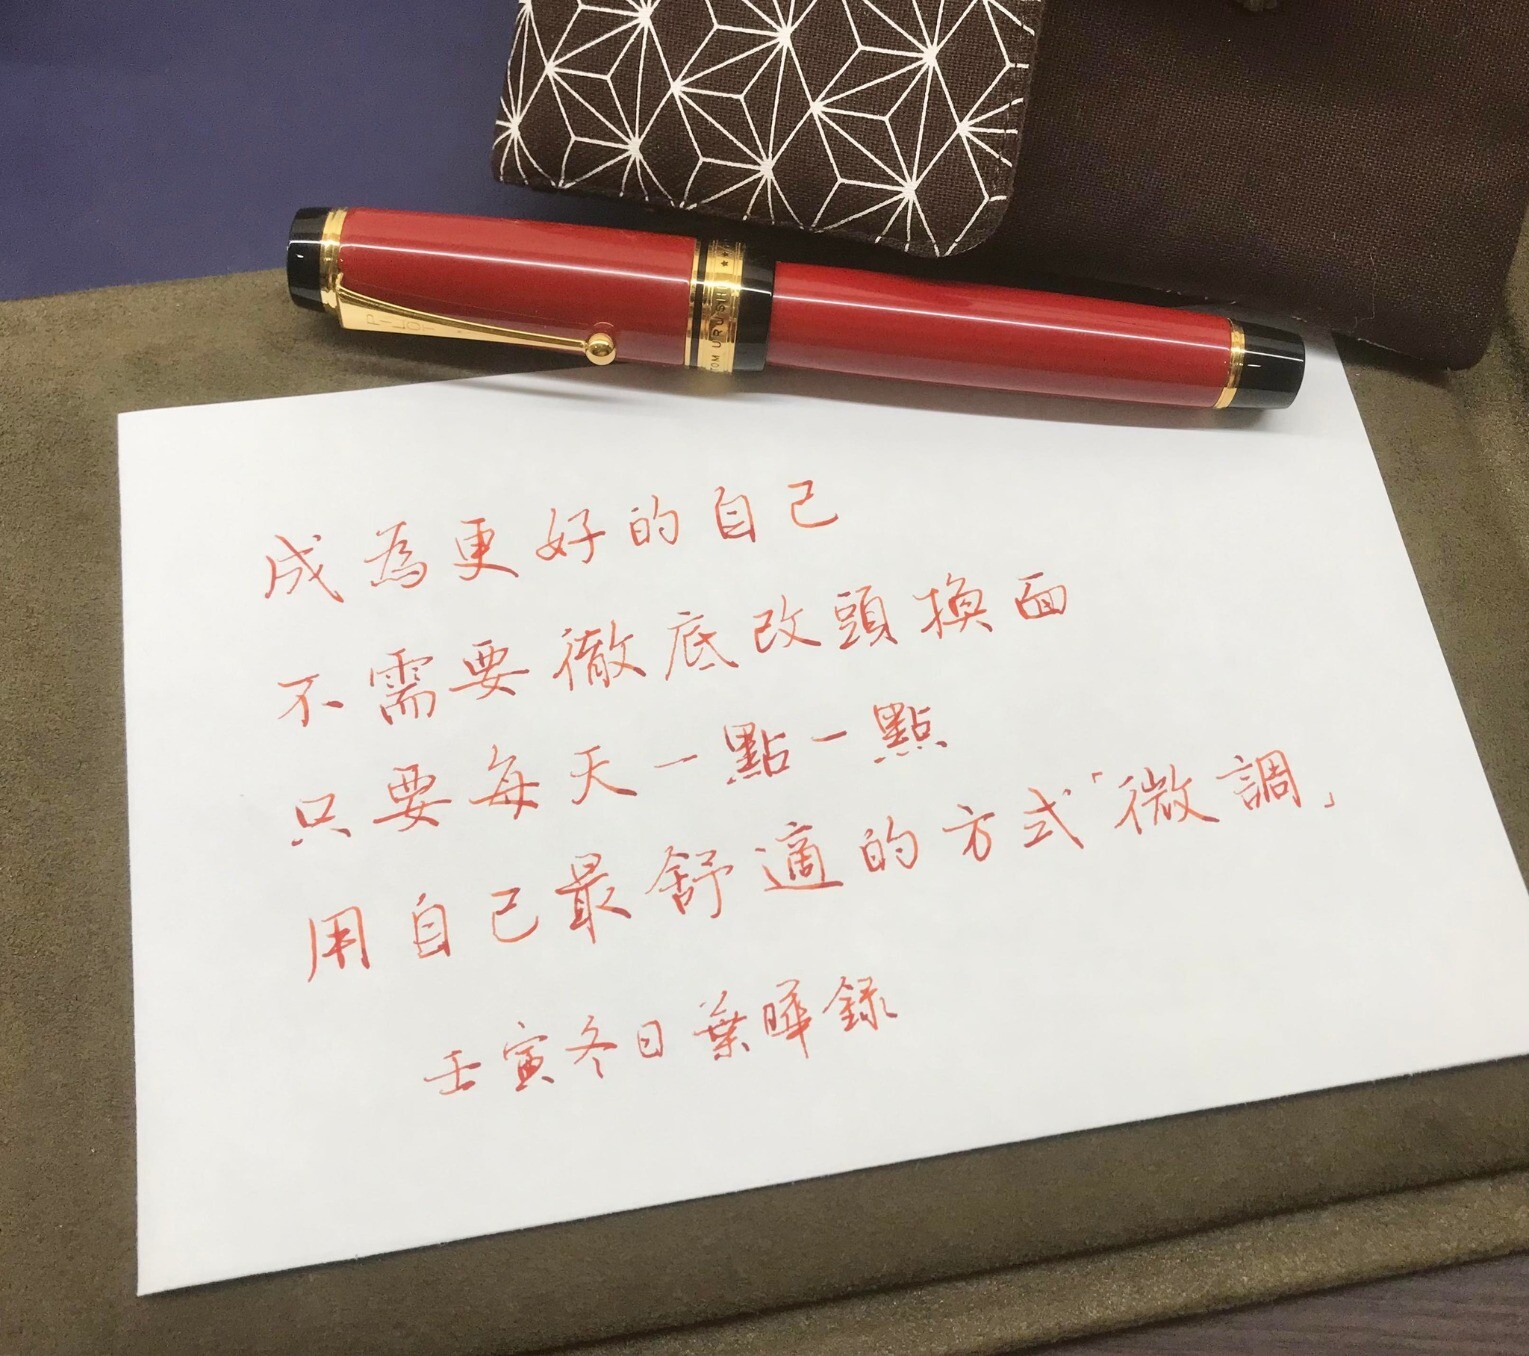 PILOT
TOM URUSHI ★
成為更好的自己
不需要徹底改頭換面
只要每天一點一點
用自己最舒適的方式「微調」
壬寅冬日葉曄錄